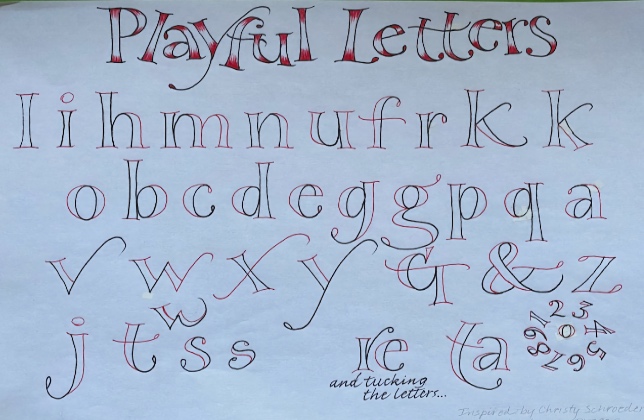 Playful Letters
l i h m n u f r k k
o b c d e g g p q a
v w x y G & z
w
j t s s re ta
and tucking
the letters...
Inspired by Christy Schroeder